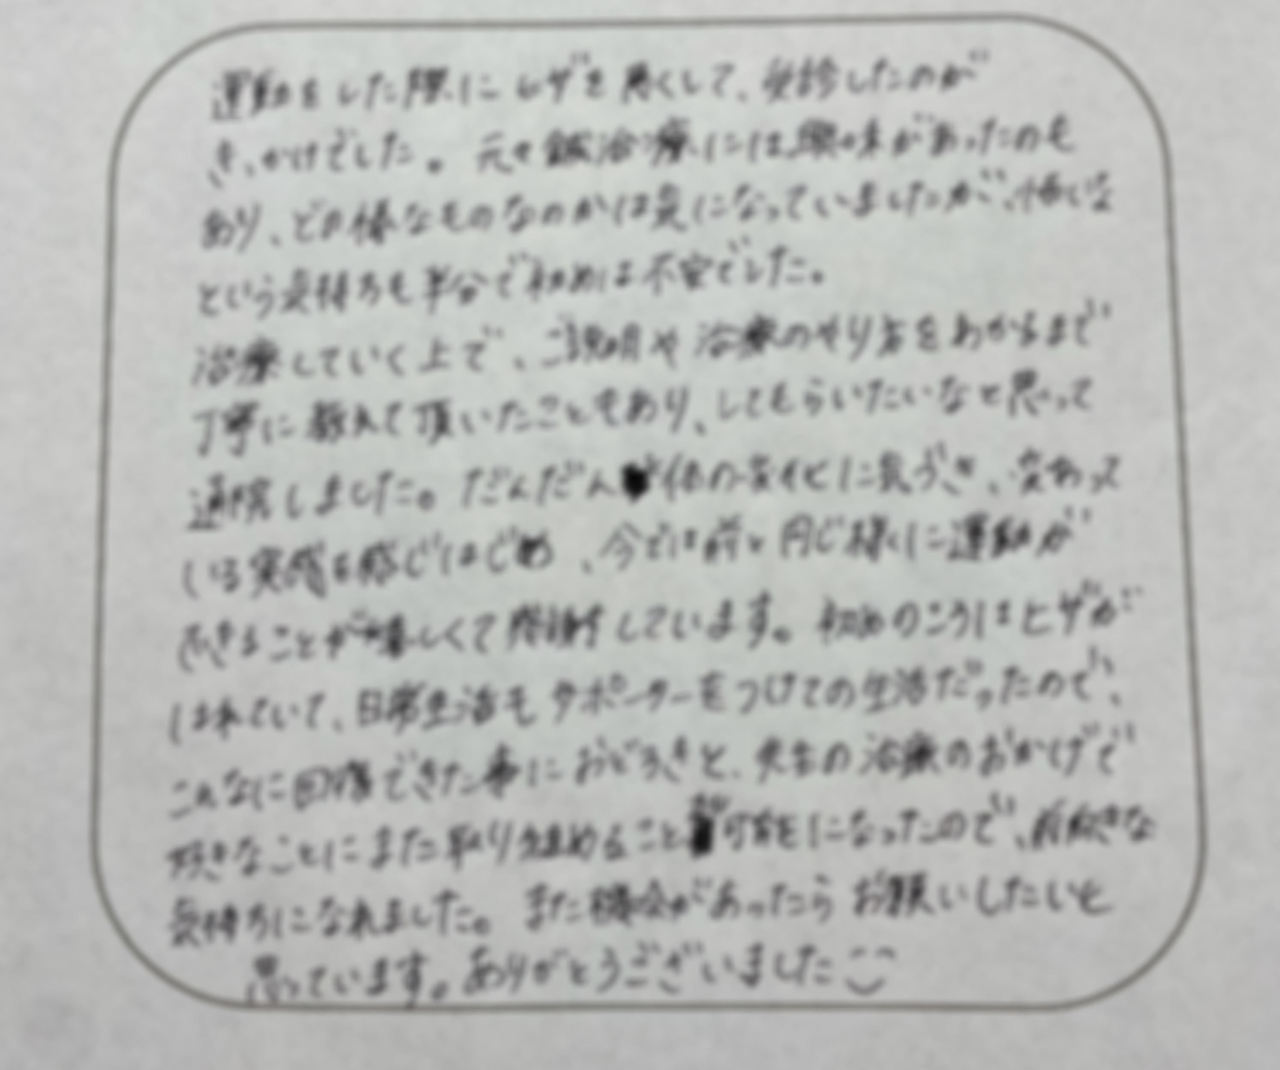 運動をした際にヒザを痛くして、受診したのが
きっかけでした。元々鍼治療には興味があったのも
あり、どの様なものなのかは気になっていましたが、怖いな
という気持ちも半分で初めは不安でした。
治療していく上で、ご説明や治療のやり方をわかるまで
丁寧に教えて頂いたこともあり、してもらいたいなと思って
通院しました。だんだん体の変化に気づき、変わって
いる実感を感じはじめ、今では前と同じ様に運動が
できることが嬉しくて感謝しています。初めのころはヒザが
はれていて、日常生活もサポーターをつけての生活だったので、
こんなに回復できた事におどろきと、先生の治療のおかげで
好きなことにまた取り組めること可能になったので、前向きな
気持ちになれました。また機会があったらお願いしたいと
思っています。ありがとうございました